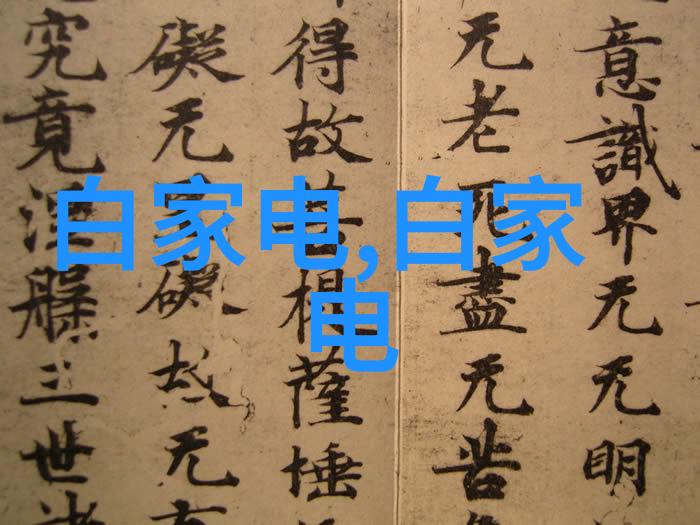 白家电,白家
电
意識界无无明
无老死盡无苦
得故菩提薩埵
礙无罣礙故无有
究竟涅槃三世諸